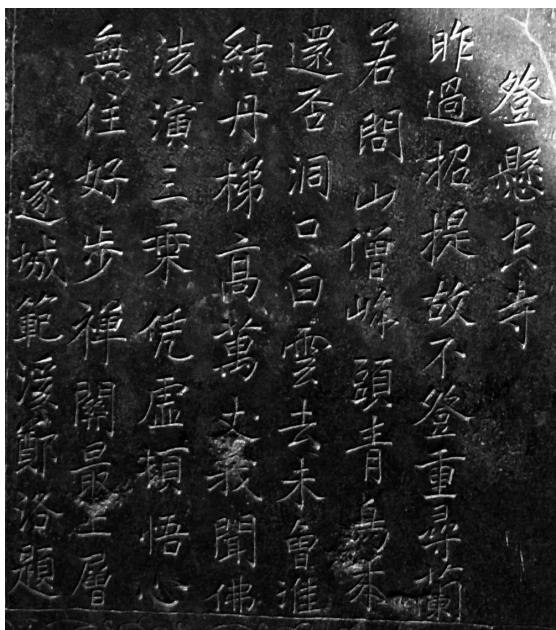 登懸空寺
昨過招提故不登重尋蘭
若問山僧峰頭青鳥来
還否洞口白雲去未曾誰
結丹梯高萬丈我聞佛
法演三乘凭虛頓悟心
無住好步禪關最上層
遂城範溪鄭洛題